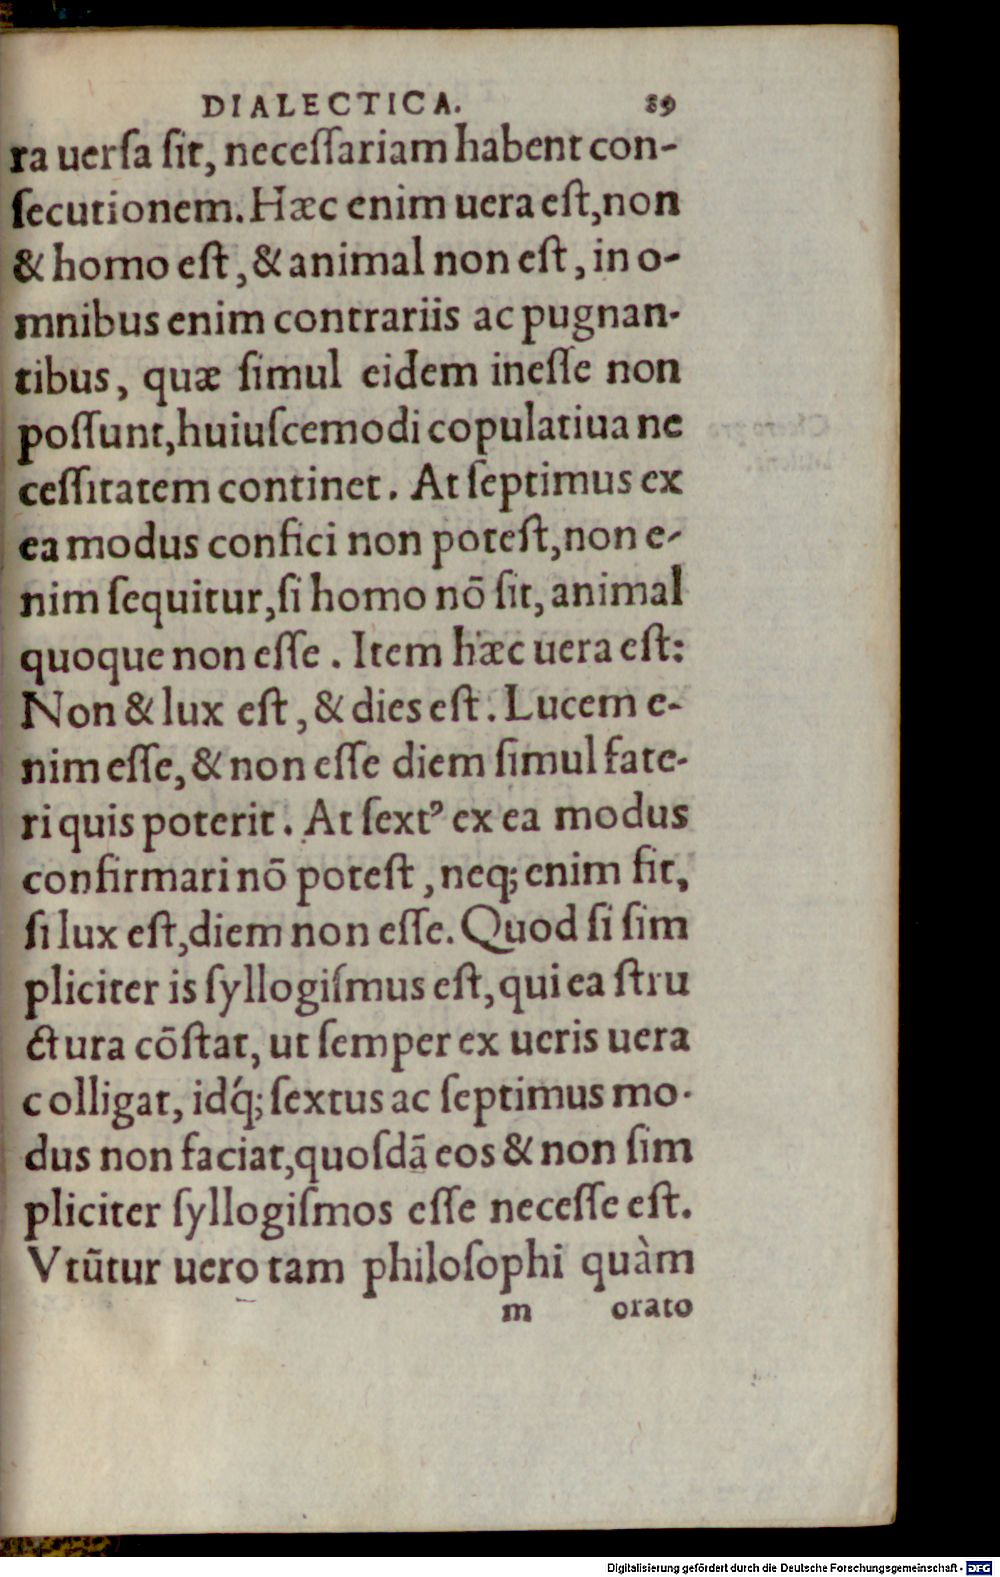 DIALECTICA. 89
ra uersa sit, necessariam habent con-
secutionem. Hæc enim uera est, non
& homo est, & animal non est, in o-
mnibus enim contrariis ac pugnan-
tibus, quæ simul eidem inesse non
possunt, huiuscemodi copulatiua ne
cessitatem continet. At septimus ex
ea modus confici non potest, non e-
nim sequitur, si homo nō sit, animal
quoque non esse. Item hæc uera est:
Non & lux est, & dies est. Lucem e-
nim esse, & non esse diem simul fate-
ri quis poterit. At sextꝰ ex ea modus
confirmari nō potest, neq; enim fit,
si lux est, diem non esse. Quod si sim
pliciter is syllogismus est, qui ea stru
ctura cōstat, ut semper ex ueris uera
colligat, idq́; sextus ac septimus mo-
dus non faciat, quosdã eos & non sim
pliciter syllogismos esse necesse est.
Vtũtur uero tam philosophi quàm
m orato
Digitalisierung gefördert durch die Deutsche Forschungsgemeinschaft - DFG